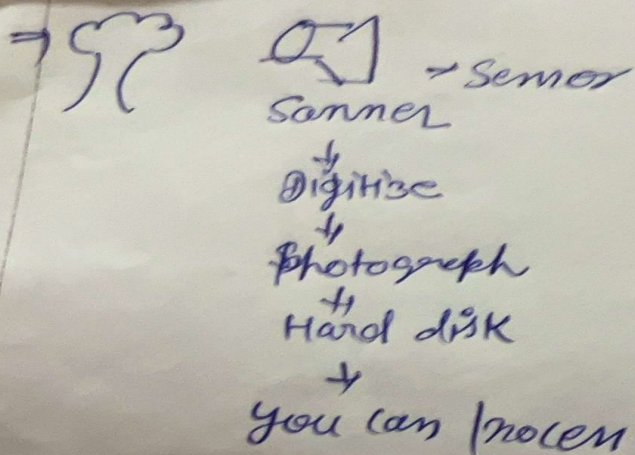 ⇒
→ Sensor
Scanner
↓
Digitize
↓
Photograph
↓
Hard disk
↓
you can process